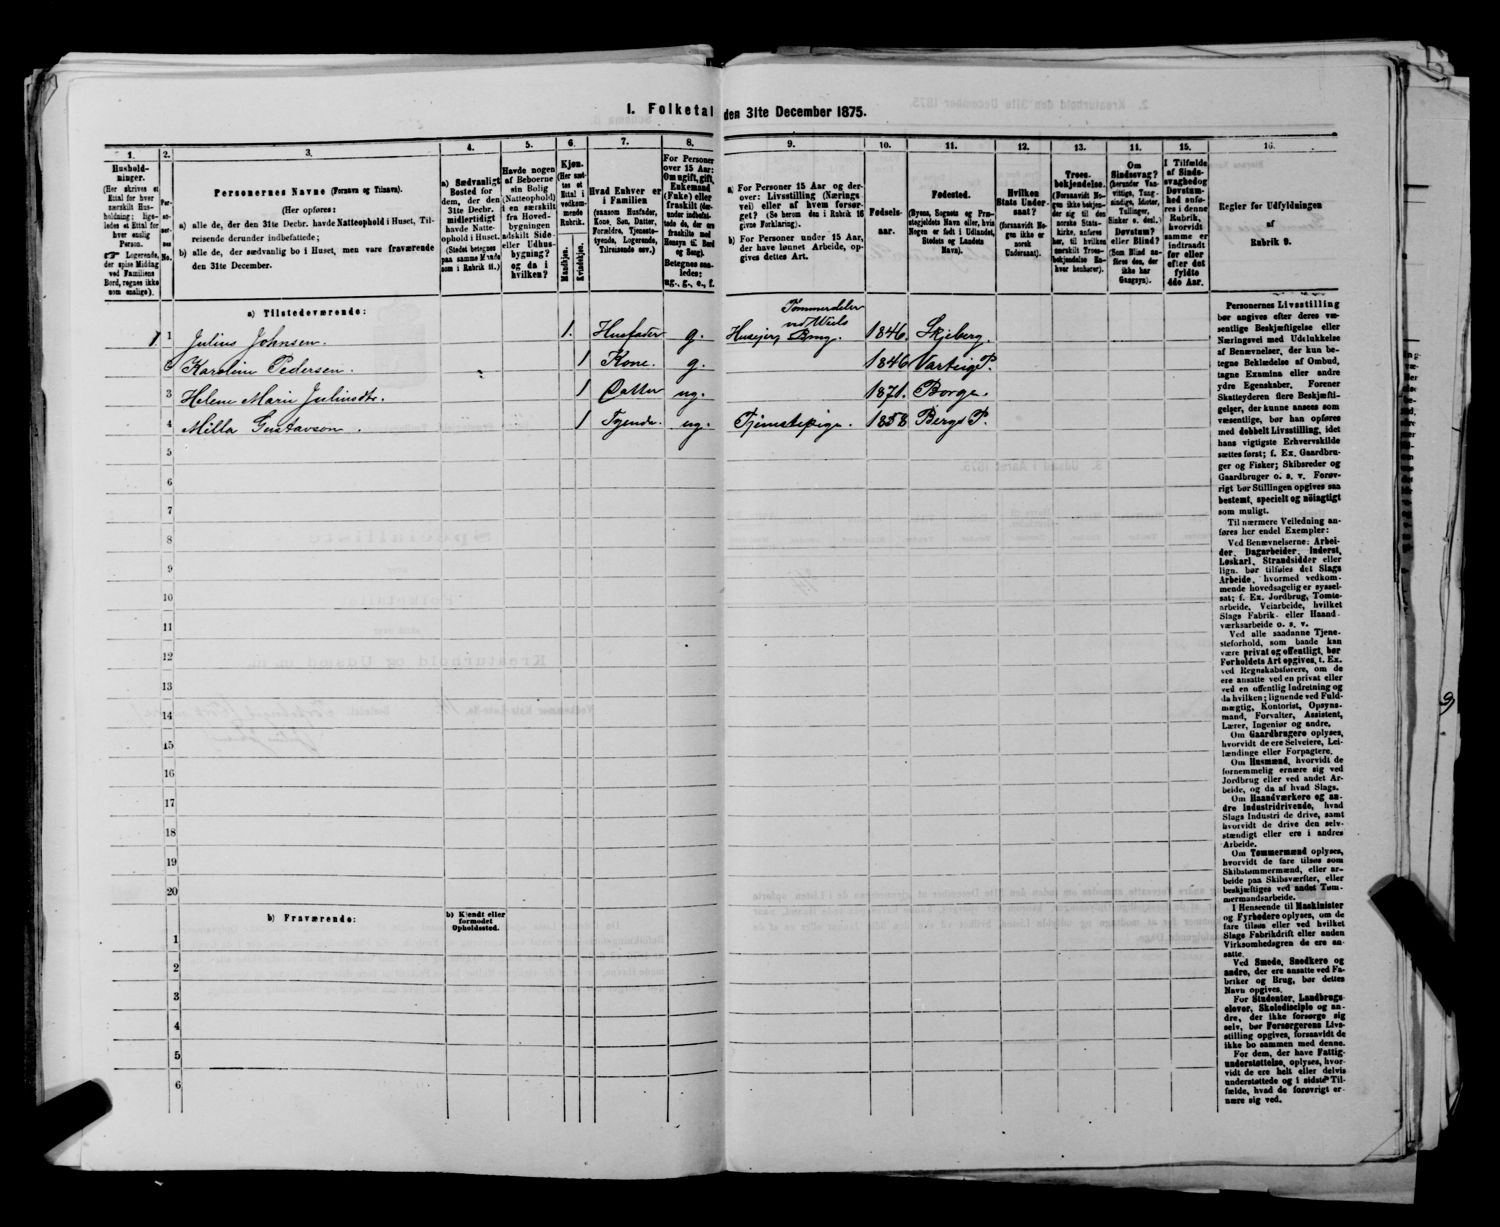 1. Folketal den 31te December 1875.
1. 2. 3. 4. 5. 6. 7. 8. 9. 10. 11. 12. 13. 11. 15. 16.
Husholdninger.
(Her skrives et
Ettal for hver
særskilt Husholdning;
ligeledes et Ettal for
hver enslig
Person.
☞ Logerende,
der spise Middag
ved Familiens
Bord, regnes ikke
som enslige).
Personernes No.
Personernes Navne (Fornavn og Tilnavn).
(Her opføres:
a) alle de, der den 31te Decbr. havde Natteophold i Huset, Tilreisende derunder indbefattede;
b) alle de, der sædvanlig bo i Huset, men vare fraværende
den 31te December.
a) Sædvanligt
Bosted for
dem, der den
31te Decbr.
midlertidigt
havde Natteophold i Huset.
(Stedet betegnes
paa samme Maade
som i Rubrik 11.)
Havde nogen
af Beboerne
sin Bolig
(Natteophold)
i en særskilt
fra Hovedbygningen
adskilt Side- eller Udhusbygning?
og da i
hvilken?
Kjøn.
(Her sættes et
Ettal i
vedkommende
Rubrik.
Mandkjøn.
Kvindekjøn.
Hvad Enhver er
i Familien
(saasom Husfader,
Kone, Søn, Datter,
Forældre, Tjenestetyende, Logerende,
Tilreisende osv.)
For Personer
over 15 Aar:
Om ugift, gift,
Enkemand
(Enke) eller
fraskilt
Betegnes saaledes:
ug., g., e., f.
a) For Personer 15 Aar og derover: Livsstilling (Næringsvei) eller af hvem forsørget? (Se herom den i Rubrik 16
givne Forklaring).
b) For Personer under 15 Aar,
der have lønnet Arbeide, opgives dettes Art.
Fødselsaar.
Fødested.
(Byens, Sognets og Præstegjeldets Navn eller, hvis
Nogen er født i Udlandet,
Stedets og Landets
Navn).
Hvilken
Stats Undersaat?
(forsaavidt Nogen ikke er
norsk
Undersaat).
Troesbekjendelse.
(Forsaavidt Nogen ikke bekjender sig til den
norske Statskirke, anføres
her, til hvilken
Troesbekjendelse Enhver henhører).
Om
Sindssvag?
(herunder Vanvittige, Tungsindige, Idioter,
Tullinger,
Sinker o. desl.)
Døvstum?
eller Blind?
(Som Blind anføres den, der
ikke har
Gangsyn).
I Tilfælde
af Sindssvaghed og
Døvstumhed anføres i denne
Rubrik,
hvorvidt
samme er
indtraadt
før eller
efter det
fyldte
4de Aar.
Regler for Udfyldningen
af
Rubrik 9.
a) Tilstedeværende:
1 1 Julius Johnsen. 1. Husfader g. Huseier, Tømmerdeler ved Brug. 1846. Skjeberg.
Karoline Pedersen. 1 Kone. g. 1846 Varteig P.
3 Helene Marie Juliusdtr. 1 Datter ug. 1871. Borge.
4 Milla Gustavson. 1 Tyende. ug. Tjenestepige. 1858 Bergs P.
5
6
7
8
9
10
11
12
13
14
15
16
17
18
19
20
b) Fraværende:
b) Kjendt eller
formodet
Opholdssted.
1
2
3
4
5
6
Personernes Livsstilling
bør angives efter deres væsentlige Beskjæftigelse eller
Næringsvei med Udelukkelse
af Benævnelser, der kun betegne Beklædelse af Ombud,
tagne Examina eller andre
ydre Egenskaber. Forener
Skatteyderen flere Beskjæftigelser, der kunne ansees som
væsentlige, bør han opføres
med dobbelt Livsstilling, idet
hans vigtigste Erhvervskilde
sættes først; f. Ex. Gaardbruger og Fisker; Skibsreder og
Gaardbruger o. s. v. Forøvrigt bør Stillingen opgives saa
bestemt, specielt og nøiagtigt
som muligt.
Til nærmere Veiledning anføres her endel Exempler:
Ved Benævnelserne: Arbeider, Dagarbeider, Inderst,
Løskarl, Strandsidder eller
lign. bør tilføies det Slags
Arbeide, hvormed vedkommende hovedsagelig er sysselsat; f. Ex. Jordbrug, Tomtearbeide, Veiarbeide, hvilket
Slags Fabrik- eller Haandværksarbeide o. s. v.
Ved alle saadanne Tjenesteforhold, som baade kan
være privat og offentligt, bør
Forholdets Art opgives, t. Ex.
ved Regnskabsførere, om de
ere ansatte ved en privat eller
ved en offentlig Indretning og
da hvilken; lignende ved Fuldmægtig, Kontorist, Opsynsmand, Forvalter, Assistent,
Lærer, Ingeniør og andre.
Om Gaardbrugere oplyses,
hvorvidt de ere Selveiere, Leilændinge eller Forpagtere.
Om Husmænd, hvorvidt de
fornemmelig ernære sig ved
Jordbrug eller ved andet Arbeide, og da af hvad Slags.
Om Haandværkere og andre Industridrivende, hvad
Slags Industri de drive, samt
hvorvidt de drive den selvstændigt eller ere i andres
Arbeide.
Om Tømmermænd oplyses,
hvorvidt de fare tilsøs som
Skibstømmermænd, eller arbeide paa Skibsværfter, eller
beskjæftiges ved andet Tømmermandsarbeide.
I Henseende til Maskinister
og Fyrbødere oplyses, om de
fare tilsøs eller ved hvilket
Slags Fabrikdrift eller anden
Virksomhed de ere ansatte.
Ved Smede, Snedkere og
andre, der ere ansatte ved Fabriker og Brug, bør dettes
Navn opgives.
For Studenter, Landbrugselever, Skoledisciple og andre, der ikke forsørge sig
selv, bør Forsørgerens Livsstilling opgives, forsaavidt de
ikke bo sammen med denne.
For dem, der have Fattigunderstøttelse, oplyses, hvorvidt de ere helt eller delvis
understøttede og i sidste Tilfælde, hvad de forøvrigt ernære sig ved.